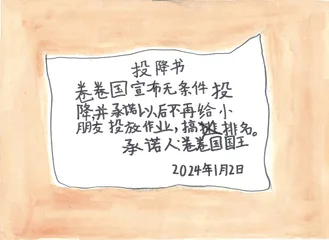 投降书
卷卷国宣布无条件投
降,并承诺以后不再给小
朋友投放作业,搞排名。
承诺人:卷卷国国王
2024年1月2日